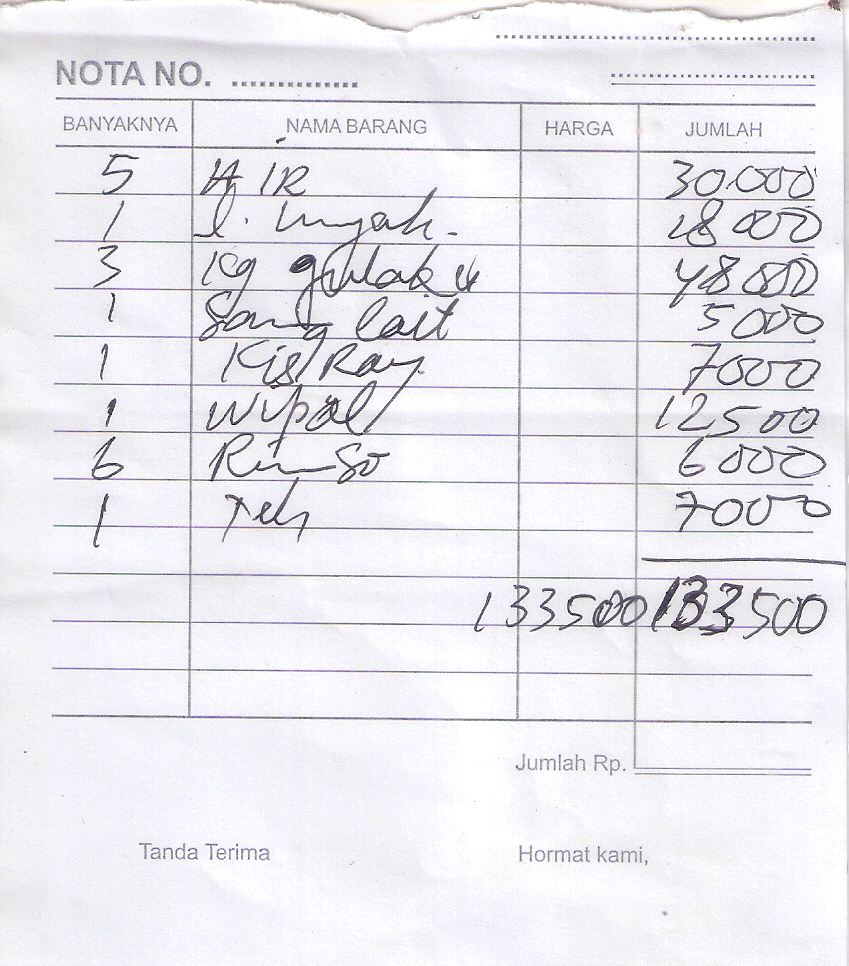 NOTA NO. ..............
BANYAKNYA NAMA BARANG HARGA JUMLAH
5 AIR 30.000
1 l. minyak. 18 000
3 Kg gulaku 48 000
1 Sang lait 5 000
1 Kis/Ray 7000
1 Wipol 12 500
6 Rinso 6 000
1 Teh 7000
133500 133500
Jumlah Rp.
Tanda Terima Hormat kami,